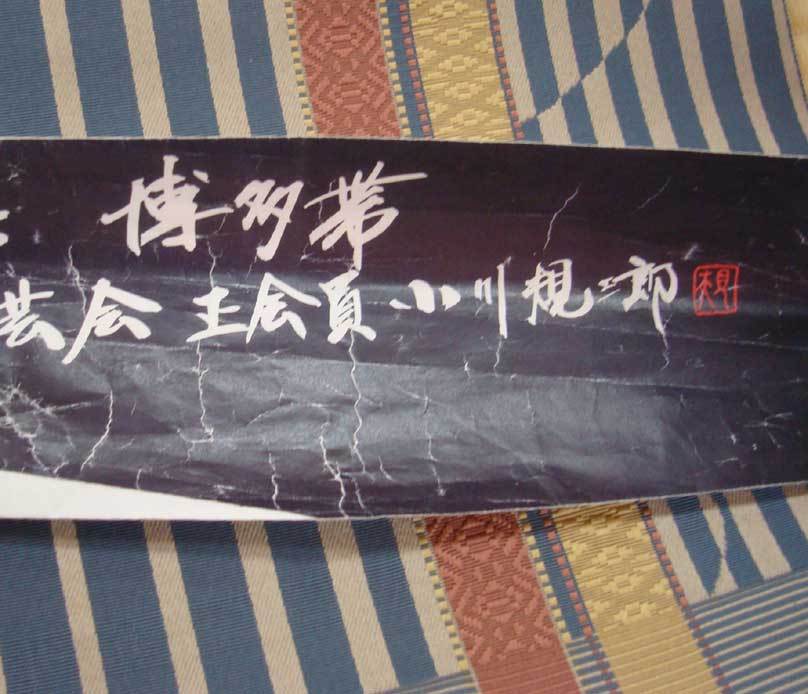 博多帯
芸会 正会員 小川規三郎
規